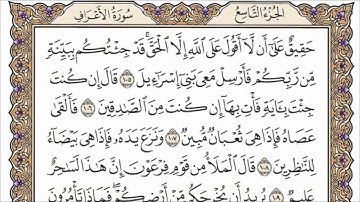 الجزء التاسع سورة الأعراف
حَقِيقٌ عَلَىٰ أَن لَّا أَقُولَ عَلَى اللَّهِ إِلَّا الْحَقَّ ۚ قَدْ جِئْتُكُم بِبَيِّنَةٍ
مِّن رَّبِّكُمْ فَأَرْسِلْ مَعِيَ بَنِي إِسْرَائِيلَ ١٠٥ قَالَ إِن كُنتَ
جِئْتَ بِآيَةٍ فَأْتِ بِهَا إِن كُنتَ مِنَ الصَّادِقِينَ ١٠٦ فَأَلْقَىٰ
عَصَاهُ فَإِذَا هِيَ ثُعْبَانٌ مُّبِينٌ ١٠٧ وَنَزَعَ يَدَهُ فَإِذَا هِيَ بَيْضَاءُ
لِلنَّاظِرِينَ ١٠٨ قَالَ الْمَلَأُ مِن قَوْمِ فِرْعَوْنَ إِنَّ هَٰذَا لَسَاحِرٌ
عَلِيمٌ ١٠٩ يُرِيدُ أَن يُخْرِجَكُم مِّنْ أَرْضِكُمْ ۖ فَمَاذَا تَأْمُرُونَ